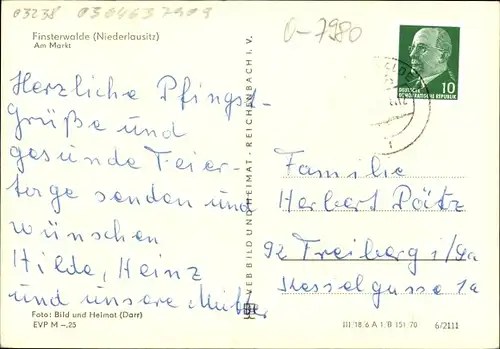 03238 0304637909
0-7980
Finsterwalde (Niederlausitz)
Am Markt
Herzliche Pfingst-
Grüße und
gesunde Feier-
tage senden und
wünschen
Hilde, Heinz
und unsere Mutter
Foto: Bild und Heimat (Darr)
EVP M –.25
VEB BILD UND HEIMAT · REICHENBACH I. V.
10
DEUTSCHE
DEMOKRATISCHE REPUBLIK
Familie
Herbert Pätz
92 Freiberg i/Sa
Kesselgasse 1a
III/18/6 A 1/B 151/70 6/2111